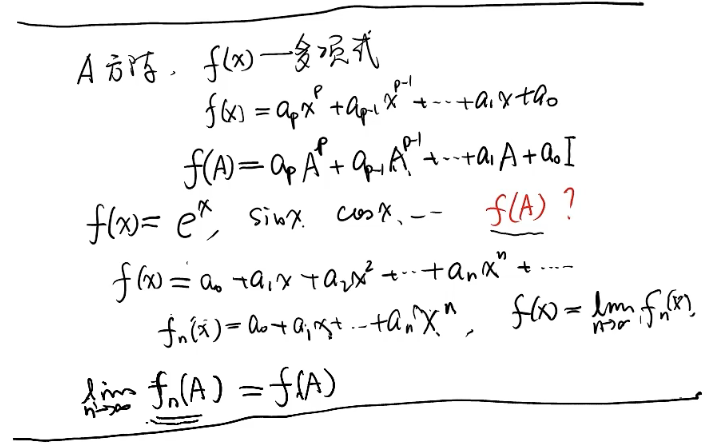 A方阵. f(x)一多项式
f(x) = aₚxᵖ + aₚ₋₁xᵖ⁻¹ + ··· + a₁x + a₀
f(A) = aₚAᵖ + aₚ₋₁Aᵖ⁻¹ + ··· + a₁A + a₀I
f(x) = eˣ, sinx. cosx, ··· f(A)?
f(x) = a₀ + a₁x + a₂x² + ··· + aₙxⁿ + ····
fₙ(x) = a₀ + a₁x + ··· + aₙxⁿ, f(x) = lim n→∞ fₙ(x),
lim n→∞ fₙ(A) = f(A)